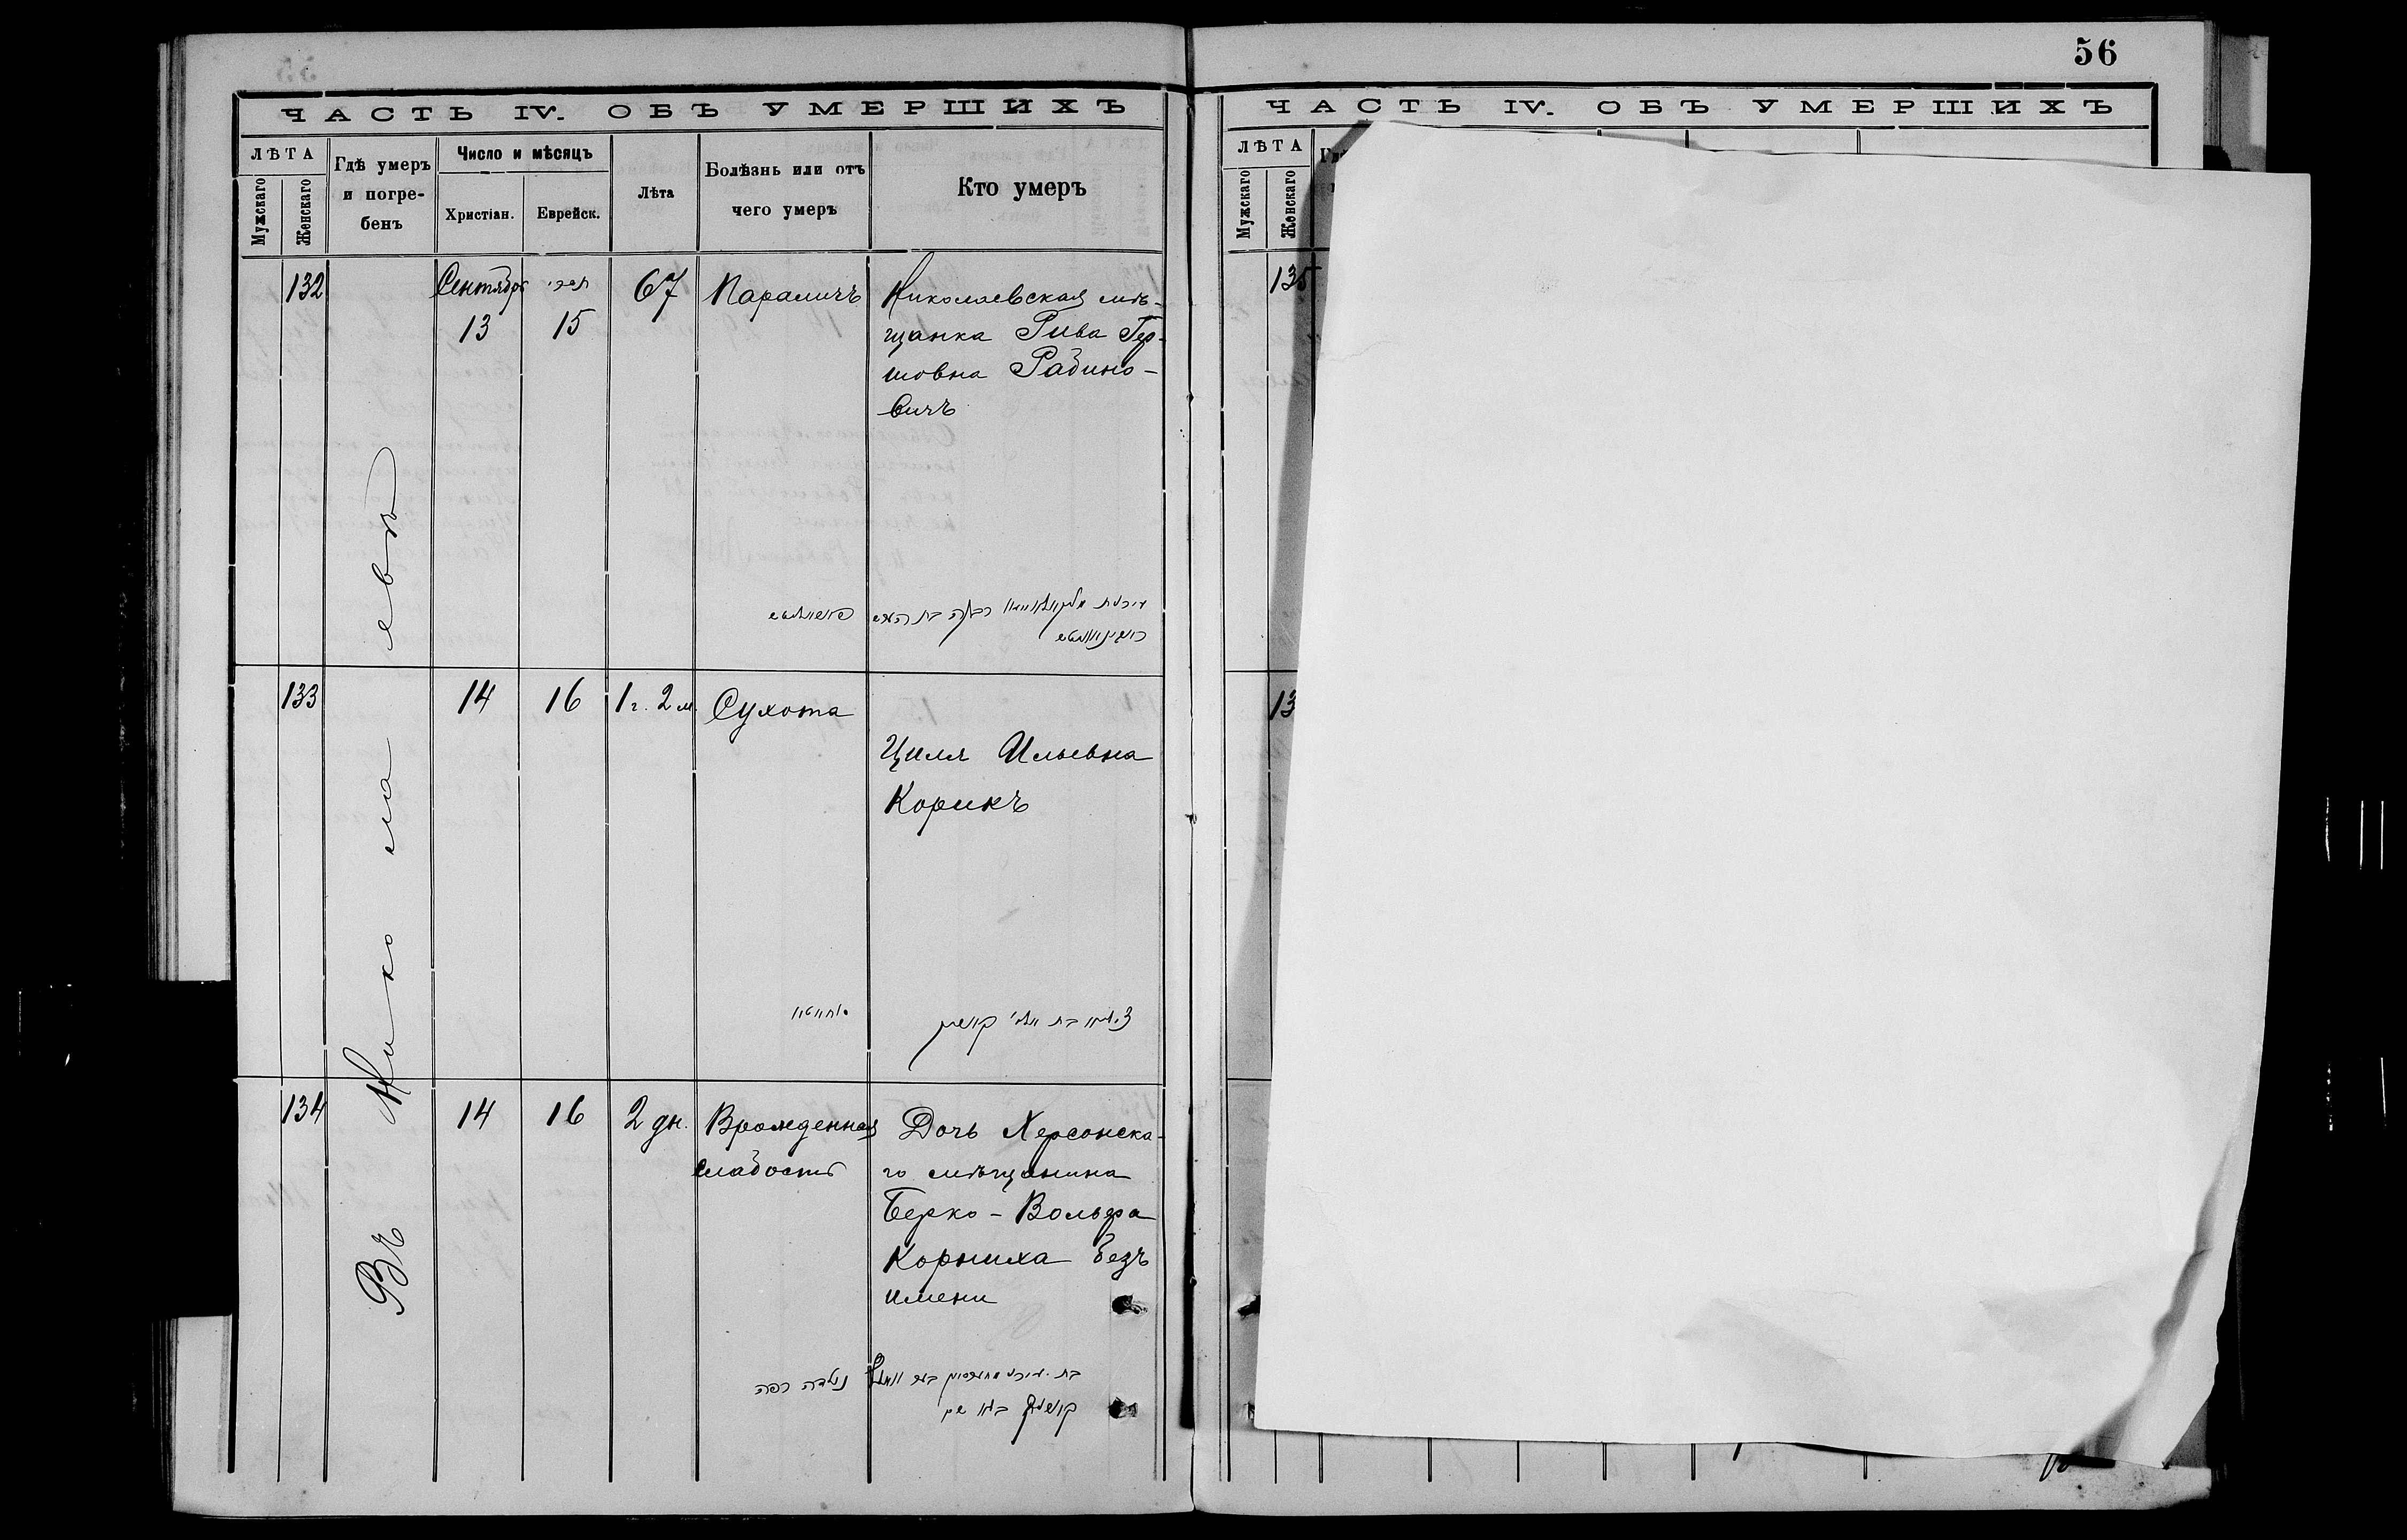 56
ЧАСТЬ IV. ОБЪ УМЕРШИХЪ
ЛѢТА
Мужскаго
Женскаго
Гдѣ умеръ
и погре-
бенъ
Число и мѣсяцъ
Христіан.
Еврейск.
Лѣта
Болѣзнь или отъ
чего умеръ
Кто умеръ
Въ Николаевѣ
132
Сентябрь
13
תשרי
15
67
Параличъ
Николаевская мѣ-
щанка Рива Гер-
шовна Рабино-
вичъ
133
14
16
1 г. 2 м.
Сухота
Циля Ильевна
Корикъ
134
14
16
2 дн.
Врожденная
слабость
Дочь Херсонска-
го мѣщанина
Берко-Вольфа
Корниха безъ
имени
נולדה רפה
ЧАСТЬ IV. ОБЪ УМЕРШИХЪ
ЛѢТА
Мужскаго
Женскаго
135
13